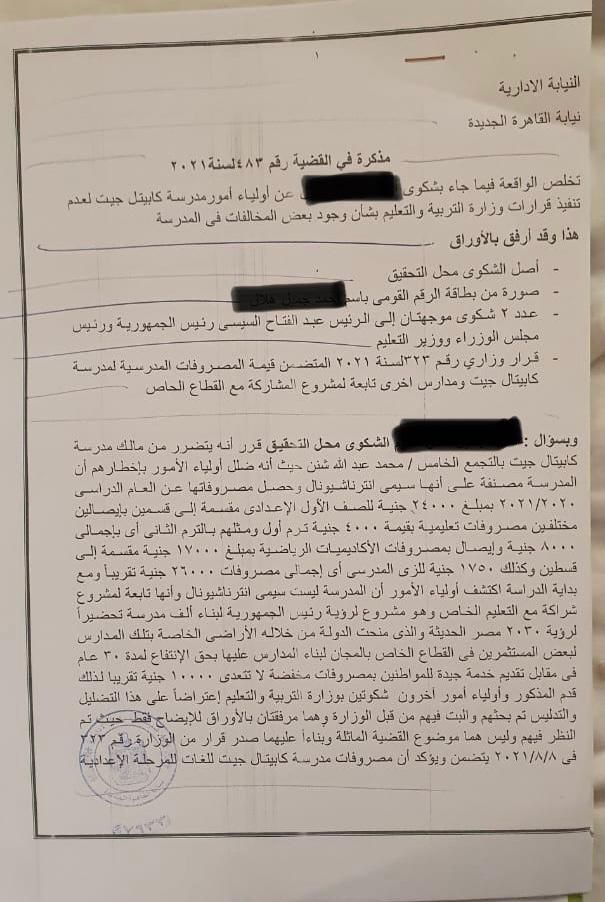 ١
النيابة الادارية
نيابة القاهرة الجديدة
مذكرة في القضية رقم ٤٨٣ لسنة ٢٠٢١
تخلص الواقعة فيما جاء بشكوى عن أولياء أمور مدرسة كابيتل جيت لعدم
تنفيذ قرارات وزارة التربية والتعليم بشأن وجود بعض المخالفات فى المدرسة
هذا وقد أرفق بالأوراق
- أصل الشكوى محل التحقيق
- صورة من بطاقة الرقم القومى باسم
- عدد ٢ شكوى موجهتان إلى الرئيس عبد الفتاح السيسى رئيس الجمهورية ورئيس
مجلس الوزراء ووزير التعليم
- قرار وزاري رقم ٣٢٣ لسنة ٢٠٢١ المتضمن قيمة المصروفات المدرسية لمدرسة
كابيتال جيت ومدارس اخرى تابعة لمشروع المشاركة مع القطاع الخاص
وبسؤال : الشكوى محل التحقيق قرر أنه يتضرر من مالك مدرسة
كابيتال جيت بالتجمع الخامس / محمد عبد الله شنن حيث أنه ضلل أولياء الأمور بإخطارهم أن
المدرسة مصنفة على أنها سيمى انترناشيونال وحصل مصروفاتها عن العام الدراسى
٢٠٢١/٢٠٢٠ بمبلغ ٢٤٠٠٠ جنية للصف الأول الإعدادى مقسمة إلى قسمين بإيصالين
مختلفين مصروفات تعليمية بقيمة ٤٠٠٠ جنية ترم أول ومثلهم بالترم الثانى أى بإجمالى
٨٠٠٠ جنية وإيصال بمصروفات الأكاديميات الرياضية بمبلغ ١٧٠٠٠ جنية مقسمة إلى
قسطين وكذلك ١٧٥٠ جنية للزى المدرسى أى إجمالى مصروفات ٢٦٠٠٠ جنية تقريباً ومع
بداية الدراسة اكتشف أولياء الأمور أن المدرسة ليست سيمى انترناشيونال وأنها تابعة لمشروع
شراكة مع التعليم الخاص وهو مشروع لرؤية رئيس الجمهورية لبناء ألف مدرسة تحضيراً
لرؤية ٢٠٣٠ مصر الحديثة والذى منحت الدولة من خلاله الأراضى الخاصة بتلك المدارس
لبعض المستثمرين فى القطاع الخاص بالمجان لبناء المدارس عليها بحق الإنتفاع لمدة ٣٠ عام
فى مقابل تقديم خدمة جيدة للمواطنين بمصروفات مخفضة لا تتعدى ١٠٠٠٠ جنية تقريبا لذلك
قدم المذكور وأولياء أمور أخرون شكوتين بوزارة التربية والتعليم إعتراضاً على هذا التضليل
والتدليس تم بحثهم والبت فيهم من قبل الوزارة وهما مرفقتان بالأوراق للإيضاح فقط حيث تم
النظر فيهم وليس هما موضوع القضية الماثلة وبناءاً عليهما صدر قرار من الوزارة رقم ٣٢٣
فى ٢٠٢١/٨/٨ يتضمن ويؤكد أن مصروفات مدرسة كابيتال جيت للغات للمرحلة الإعدادية